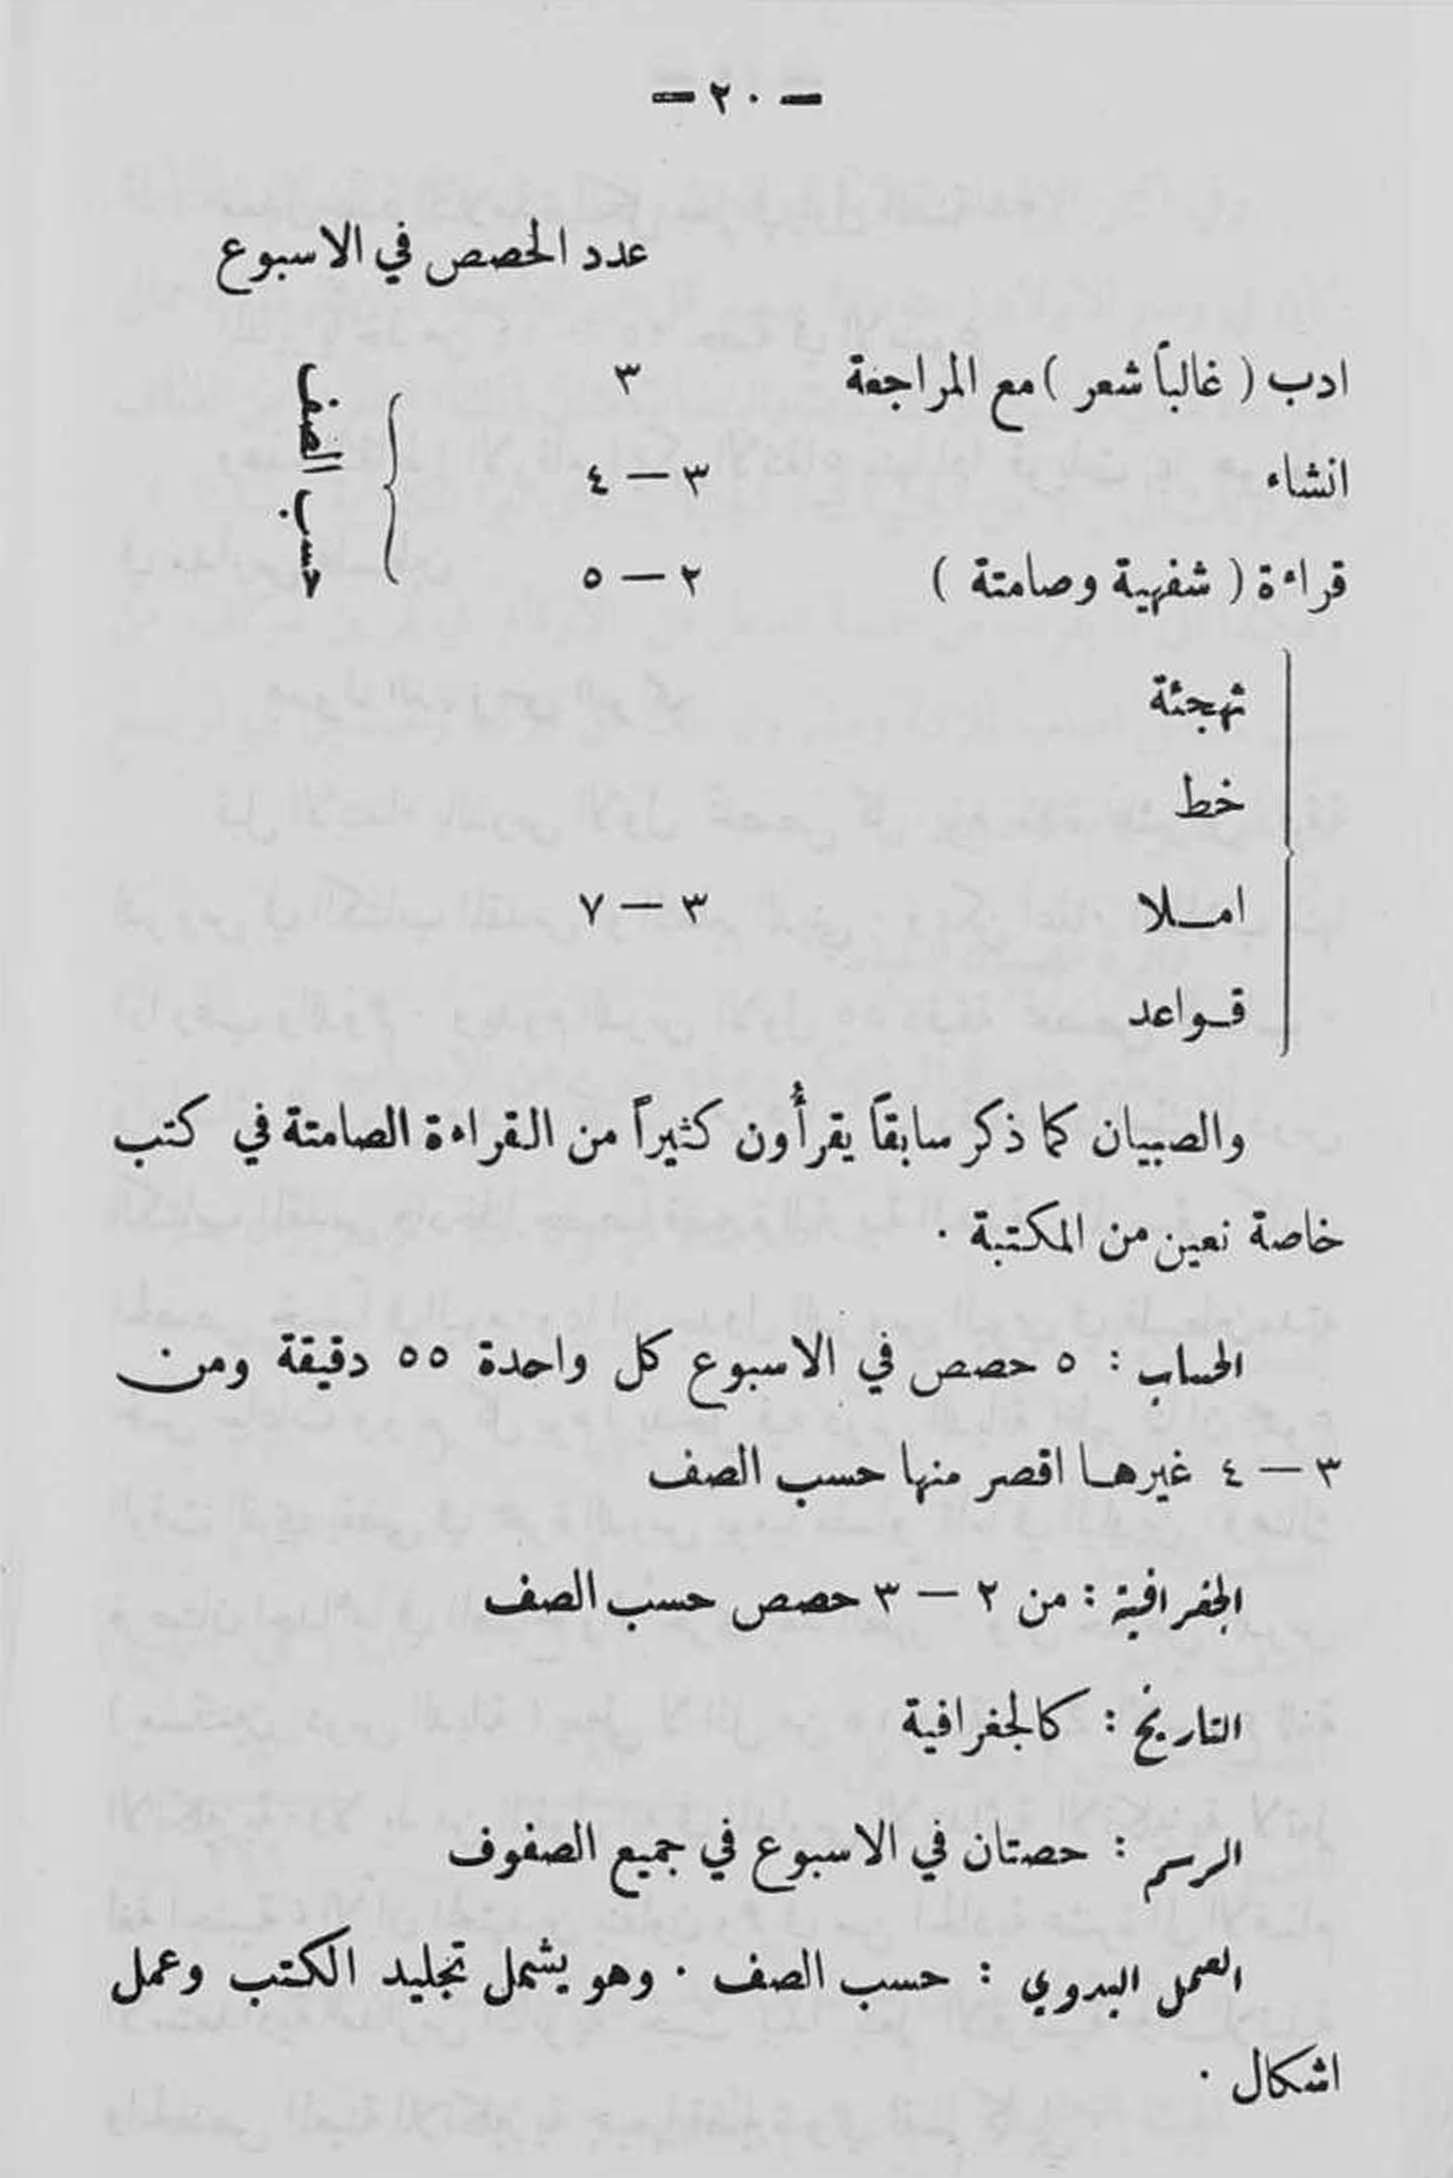 — ٢٠ —
عدد الحصص في الاسبوع
ادب ( غالباً شعر ) مع المراجعة ٣
انشاء ٣ — ٤
قراءة ( شفهية وصامتة ) ٢ — ٥
حسب الصف
تهجئة
خط
امـلا ٣ — ٧
قـواعد
والصبيان كما ذكر سابقاً يقرأون كثيراً من القراءة الصامتة في كتب
خاصة نعين من المكتبة .
الحساب : ٥ حصص في الاسبوع كل واحدة ٥٥ دقيقة ومن
٣ — ٤ غيرهـا اقصر منها حسب الصف
الجغرافية : من ٢ — ٣ حصص حسب الصف
التاريخ : كالجغرافية
الرسم : حصتان في الاسبوع في جميع الصفوف
العمل اليدوي : حسب الصف . وهو يشمل تجليد الكتب وعمل
اشكال .